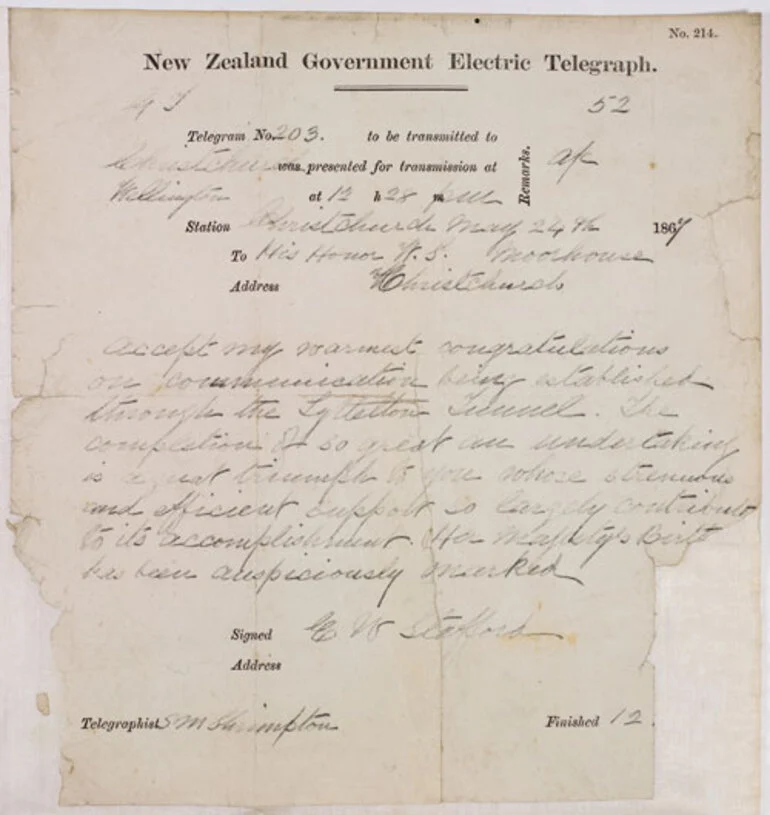 No. 214.
New Zealand Government Electric Telegraph.
52
Telegram No. 203. to be transmitted to
Christchurch was presented for transmission at
Wellington at 12 h 28 pm
Remarks.
Station Christchurch May 24th 1867
To His Honor W. S. Moorhouse
Address Christchurch
Accept my warmest congratulations
on communication being established
through the Lyttelton Tunnel. The
completion of so great an undertaking
is a great triumph to you whose strenuous
and efficient support so largely contribut
to its accomplishment. Her Majesty's Birth
has been auspiciously marked
Signed E W Stafford
Address
Telegraphist S M Shrimpton
Finished 12.